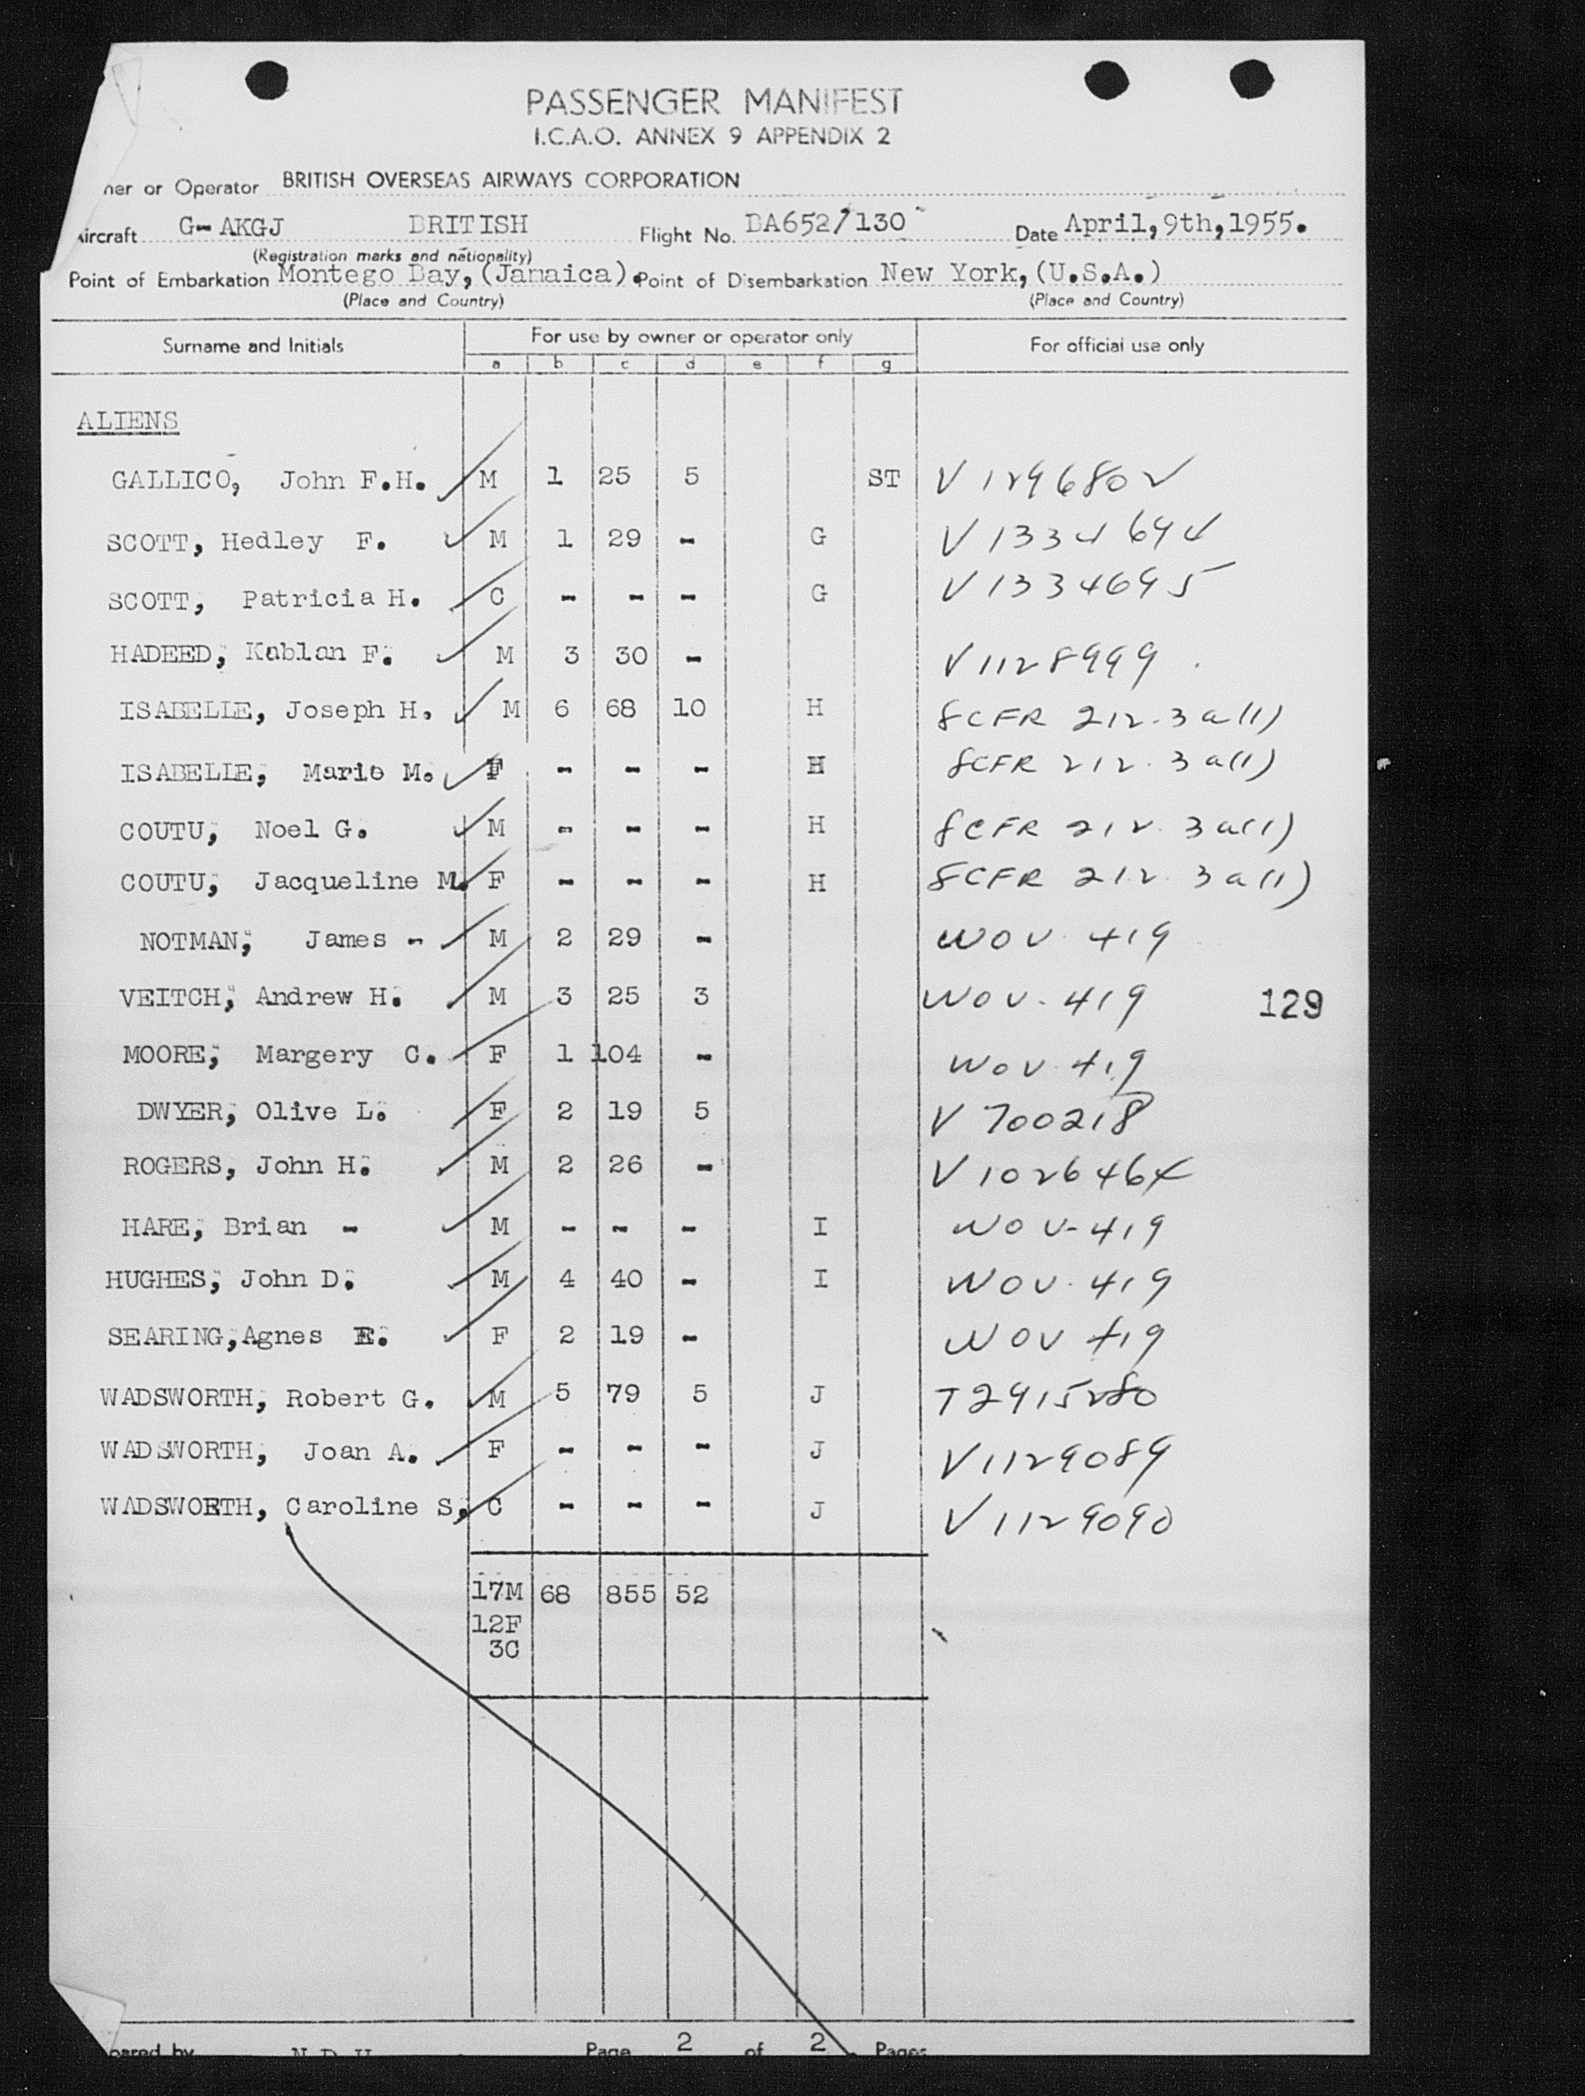 PASSENGER MANIFEST
I.C.A.O. ANNEX 9 APPENDIX 2
ner or Operator BRITISH OVERSEAS AIRWAYS CORPORATION
ircraft G-AKGJ BRITISH Flight No. BA652/130 Date April,9th,1955.
(Registration marks and nationality)
Point of Embarkation Montego Bay,(Jamaica). Point of Disembarkation New York,(U.S.A.)
(Place and Country) (Place and Country)
Surname and Initials For use by owner or operator only For official use only
a b c d e f g
ALIENS
GALLICO, John F.H. M 1 25 5 ST V 1296802
SCOTT, Hedley F. M 1 29 - G V 1334694
SCOTT, Patricia H. C - - - G V 1334695
HADEED, Kablan F. M 3 30 - V 1128999
ISABELLE, Joseph H. M 6 68 10 H 8CFR 212.3a(1)
ISABELLE, Marie M. F - - - H 8CFR 212.3a(1)
COUTU, Noel G. M - - - H 8CFR 212.3a(1)
COUTU, Jacqueline M. F - - - H 8CFR 212.3a(1)
NOTMAN, James - M 2 29 - WOV 419
VEITCH, Andrew H. M 3 25 3 WOV. 419 129
MOORE, Margery C. F 1 104 - WOV. 419
DWYER, Olive L. F 2 19 5 V 700218
ROGERS, John H. M 2 26 - V 1026464
HARE, Brian - M - - - I WOV-419
HUGHES, John D. M 4 40 - I WOV. 419
SEARING,Agnes E. F 2 19 - WOV 419
WADSWORTH, Robert G. M 5 79 5 J T2915280
WADSWORTH, Joan A. F - - - J V1129089
WADSWORTH, Caroline S. C - - - J V1129090
17M 68 855 52
12F
3C
pared by Page 2 of 2 Pages